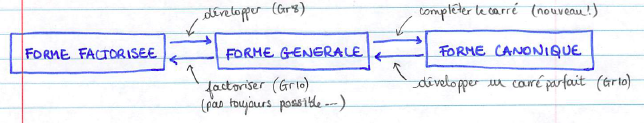 développer (Gr8)
compléter le carré (nouveau!)
FORME FACTORISEE
FORME GENERALE
FORME CANONIQUE
factoriser (Gr10)
(pas toujours possible...)
développer un carré parfait (Gr10)